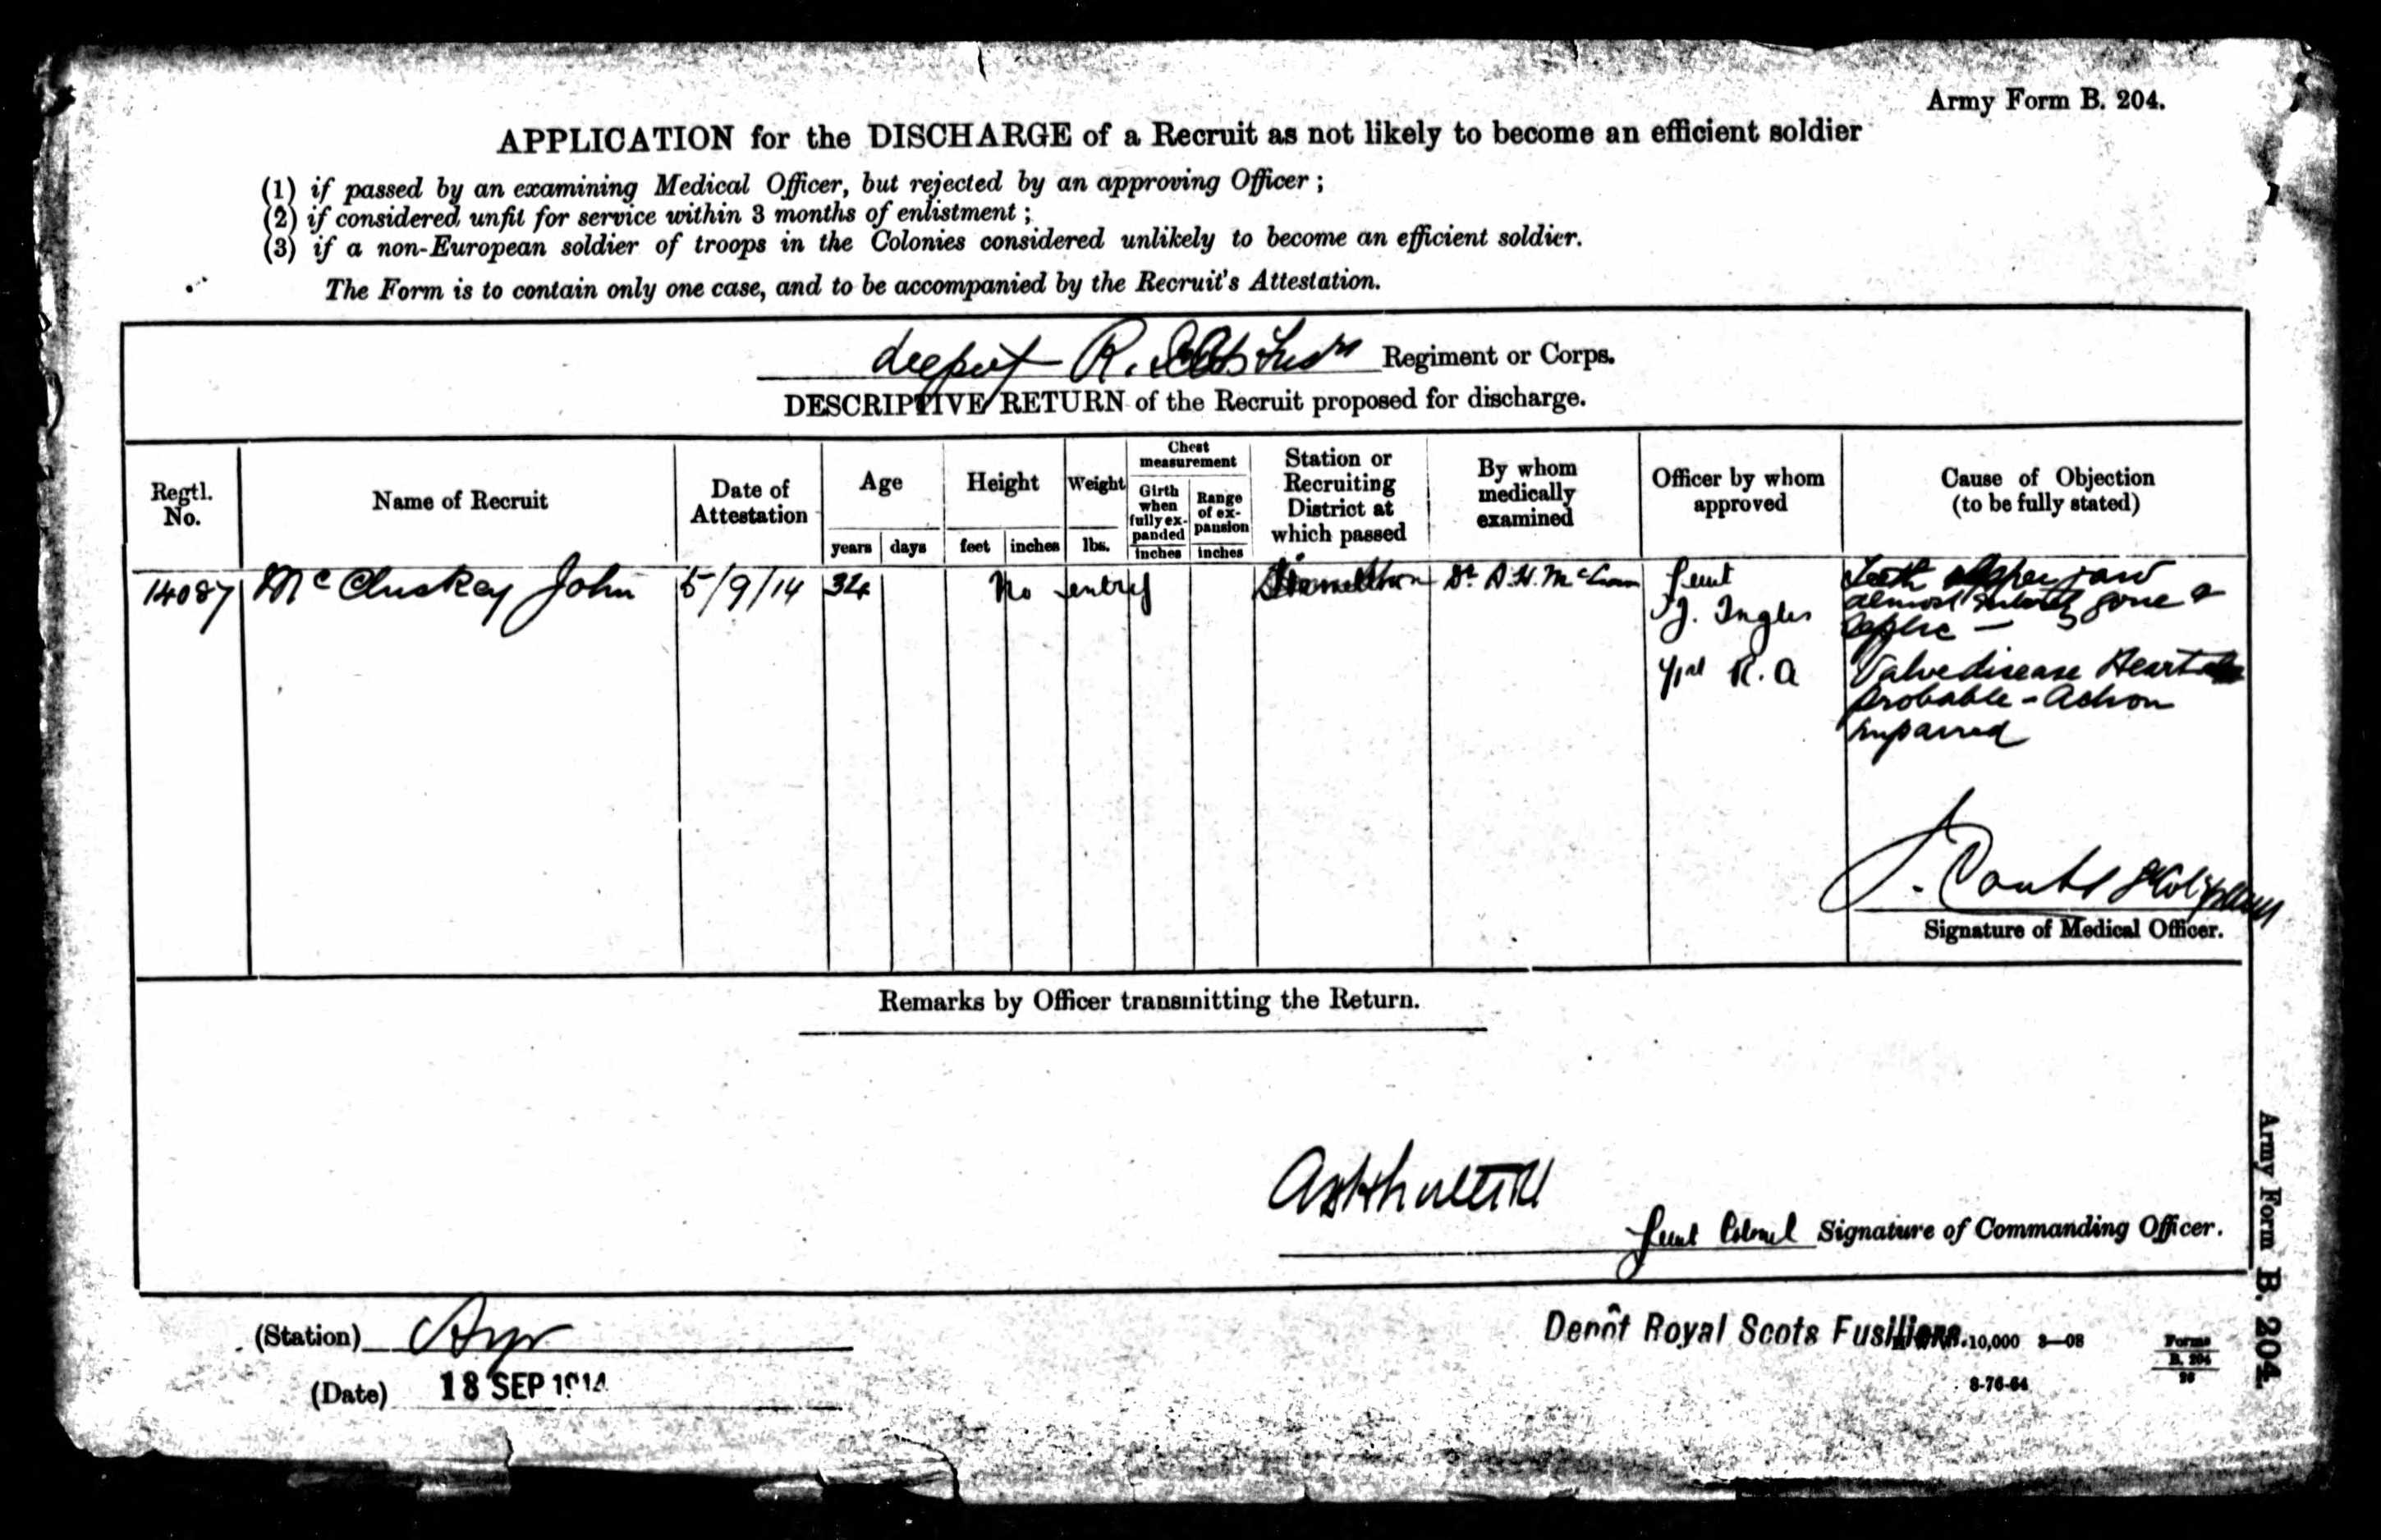 Army Form B. 204.
APPLICATION for the DISCHARGE of a Recruit as not likely to become an efficient soldier
(1) if passed by an examining Medical Officer, but rejected by an approving Officer ;
(2) if considered unfit for service within 3 months of enlistment ;
(3) if a non-European soldier of troops in the Colonies considered unlikely to become an efficient soldier.
The Form is to contain only one case, and to be accompanied by the Recruit's Attestation.
R. Regiment or Corps.
DESCRIPTIVE RETURN of the Recruit proposed for discharge.
Regtl. No.
Name of Recruit
Date of Attestation
Age
years days
Height
feet inches
Weight
lbs.
Chest measurement
Girth when fully ex-panded
inches
Range of ex-pansion
inches
Station or Recruiting District at which passed
By whom medically examined
Officer by whom approved
Cause of Objection (to be fully stated)
14087 McCluskey John 5/9/14 34 No entry Hamilton Dr A. H.
Lieut
J.
R. A
Teeth upper jaw
almost entirely gone &
septic —
Valve disease Heart
probable - Action
impaired
J.
Signature of Medical Officer.
Remarks by Officer transmitting the Return.
Lieut Colonel Signature of Commanding Officer.
(Station) Ayr
(Date) 18 SEP 1914
Depôt Royal Scots Fusiliers.
10,000 3—08
8-76-64
Forms
B. 204
26
Army Form B. 204.